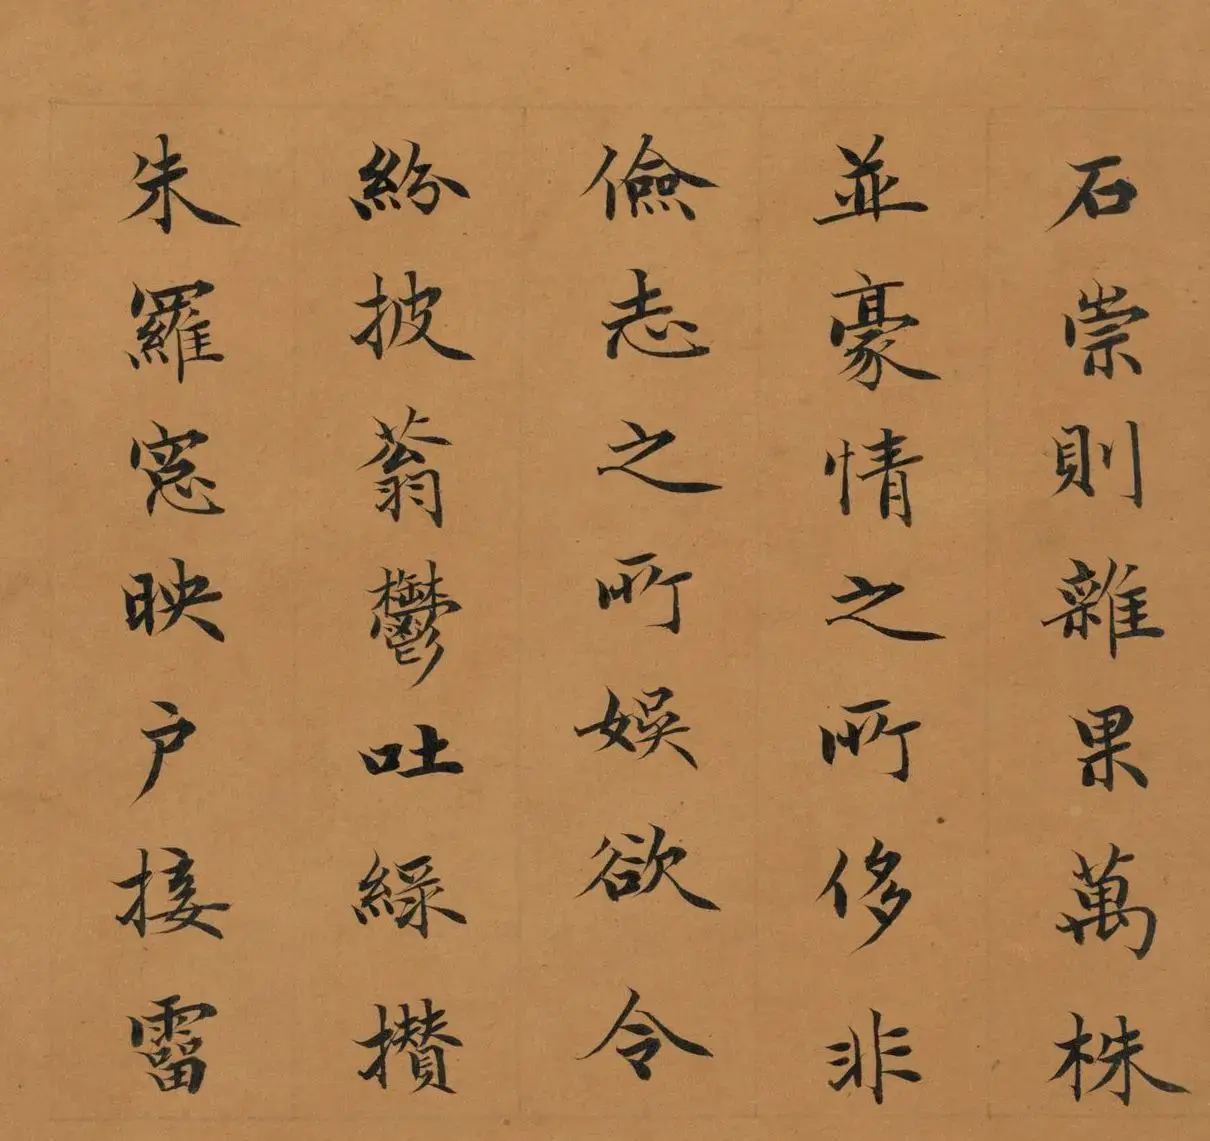 石崇則雜果萬株
並豪情之所侈非
儉志之所娛欲令
紛披蓊鬱吐綠攢
朱羅窓映户接霤